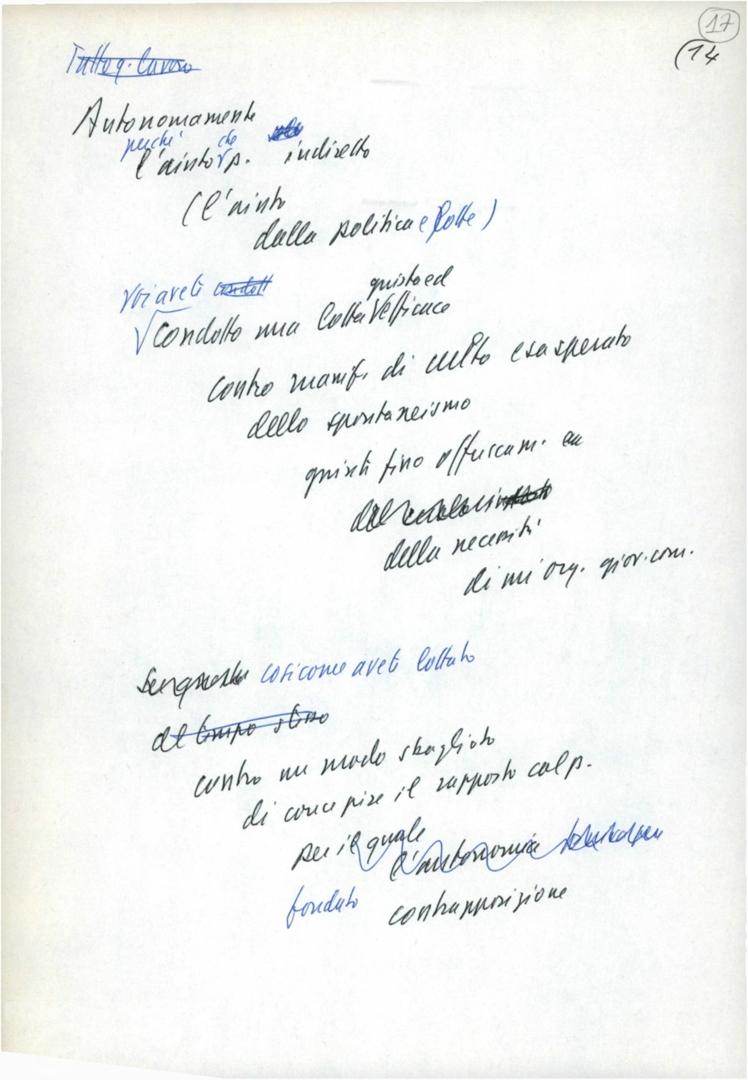 17
(14
Tutto q. lavoro
Autonomamente
perché che
l'aiuto p. indiretto
(l'aiuto
dalla politica e lotte)
Voi avete condott
giusta ed
condotto una lotta efficace
contro manif. di culto esasperato
dello spontaneismo
giunti fino offuscam.
del
della necessità
di un'org. giov. com.
Senza cosicome avete lottato
al tempo stesso
contro un modo sbagliato
di concepire il rapporto col p.
per il quale
l'autonomia
fondato contrapposizione